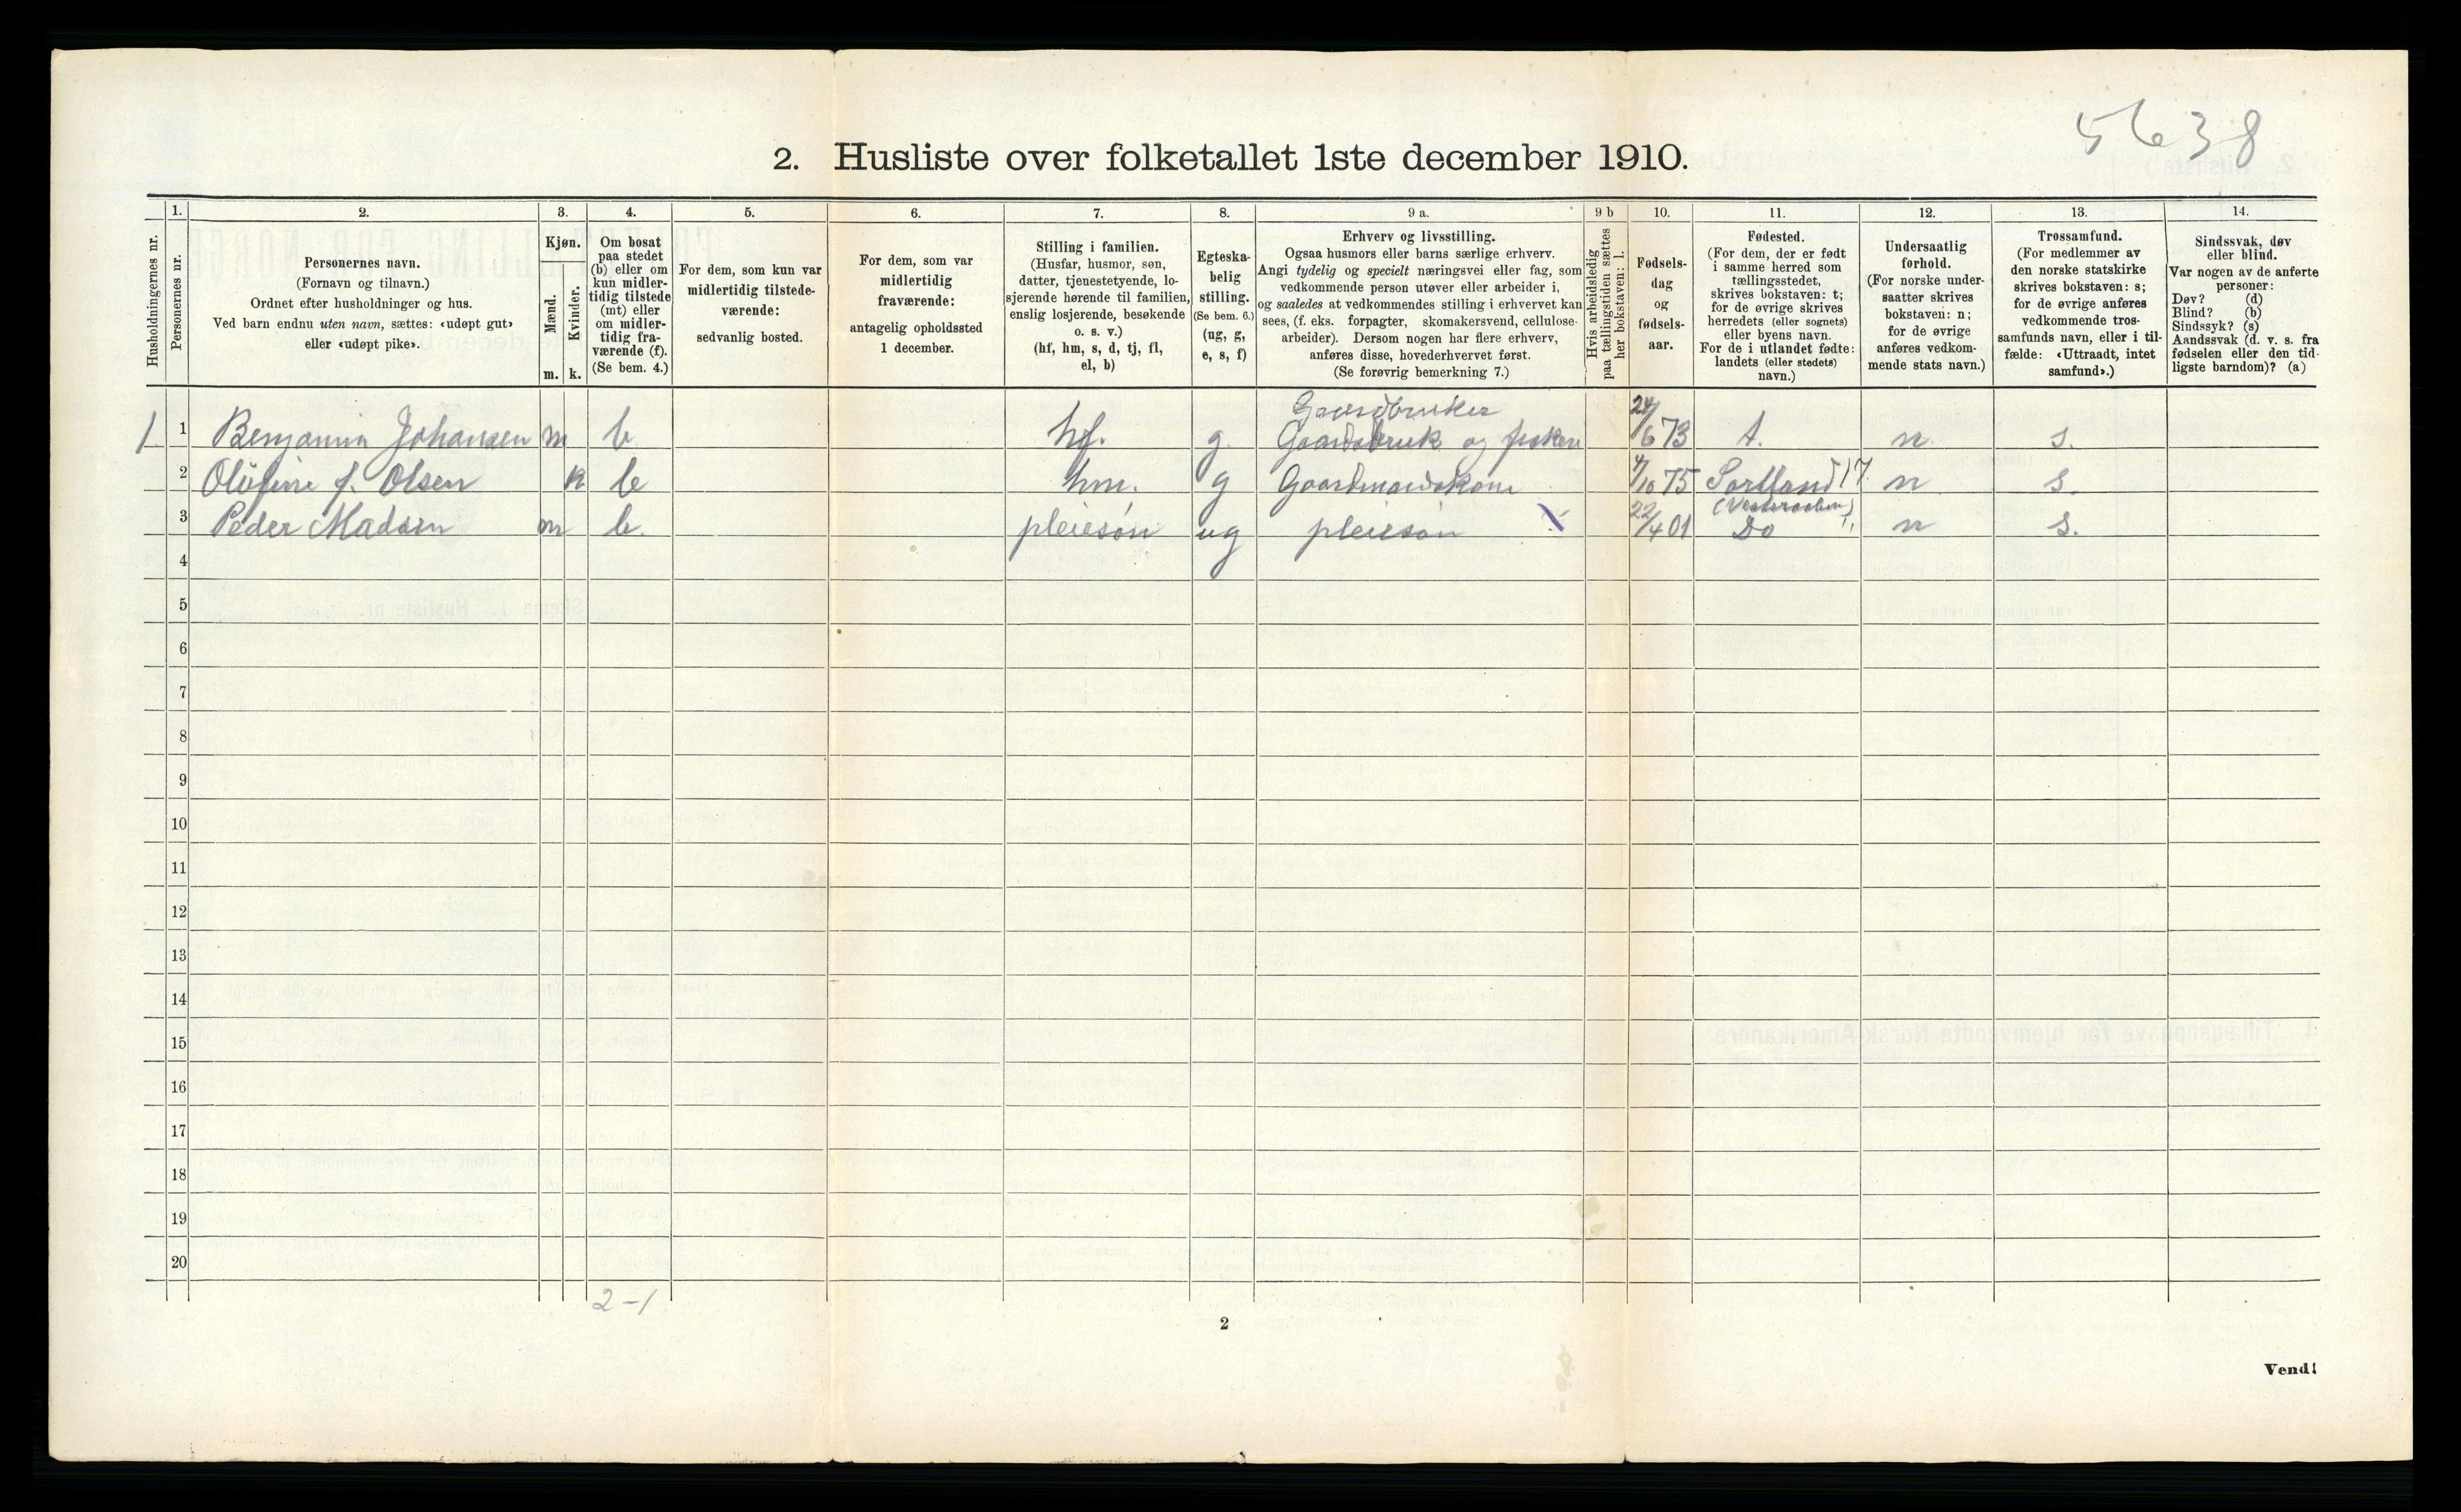 5638
2. Husliste over folketallet 1ste december 1910.
Husholdningernes nr.
1. Personernes nr.
2. Personernes navn.
(Fornavn og tilnavn.)
Ordnet efter husholdninger og hus.
Ved barn endnu uten navn, sættes: «udøpt gut»
eller «udøpt pike».
3. Kjøn.
Mænd. m.
Kvinder. k.
4. Om bosat
paa stedet
(b) eller om
kun midler-
tidig tilstede
(mt) eller
om midler-
tidig fra-
værende (f).
(Se bem. 4.)
5. For dem, som kun var
midlertidig tilstede-
værende:
sedvanlig bosted.
6. For dem, som var
midlertidig
fraværende:
antagelig opholdssted
1 december.
7. Stilling i familien.
(Husfar, husmor, søn,
datter, tjenestetyende, lo-
sjerende hørende til familien,
enslig losjerende, besøkende
o. s. v.)
(hf, hm, s, d, tj, fl,
el, b)
8. Egteska-
belig
stilling.
(Se bem. 6.)
(ug, g,
e, s, f)
9 a. Erhverv og livsstilling.
Ogsaa husmors eller barns særlige erhverv.
Angi tydelig og specielt næringsvei eller fag, som
vedkommende person utøver eller arbeider i,
og saaledes at vedkommendes stilling i erhvervet kan
sees, (f. eks. forpagter, skomakersvend, cellulose-
arbeider). Dersom nogen har flere erhverv,
anføres disse, hovederhvervet først.
(Se forøvrig bemerkning 7.)
9 b Hvis arbeidsledig
paa tællingstiden sættes
her bokstaven: l.
10. Fødsels-
dag
og
fødsels-
aar.
11. Fødested.
(For dem, der er født
i samme herred som
tællingsstedet,
skrives bokstaven: t;
for de øvrige skrives
herredets (eller sognets)
eller byens navn.
For de i utlandet fødte:
landets (eller stedets)
navn.)
12. Undersaatlig
forhold.
(For norske under-
saatter skrives
bokstaven: n;
for de øvrige
anføres vedkom-
mende stats navn.)
13. Trossamfund.
(For medlemmer av
den norske statskirke
skrives bokstaven: s;
for de øvrige anføres
vedkommende tros-
samfunds navn, eller i til-
fælde: «Uttraadt, intet
samfund».)
14. Sindssvak, døv
eller blind.
Var nogen av de anførte
personer:
Døv? (d)
Blind? (b)
Sindssyk? (s)
Aandssvak (d. v. s. fra
fødselen eller den tid-
ligste barndom)? (a)
Gaardbruker
1 1 Benjamin Johansen m b hf. g. Gaardsbruk og fisker 24/6 73 t. n. s.
2 Olufine J. Olsen k b hm. g Gaardmandskone 4/10 75 Sortland 17 n s.
(Vesteraalen)
3 Peder Madsen m b. pleiesøn ug pleiesøn 22/4 01 Do " n s.
4
5
6
7
8
9
10
11
12
13
14
15
16
17
18
19
20
2-1
2
Vend!